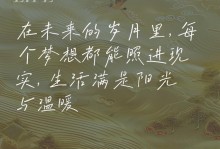 在未来的岁月里,每
个梦想都能照进现
实,生活满是阳光
与温暖